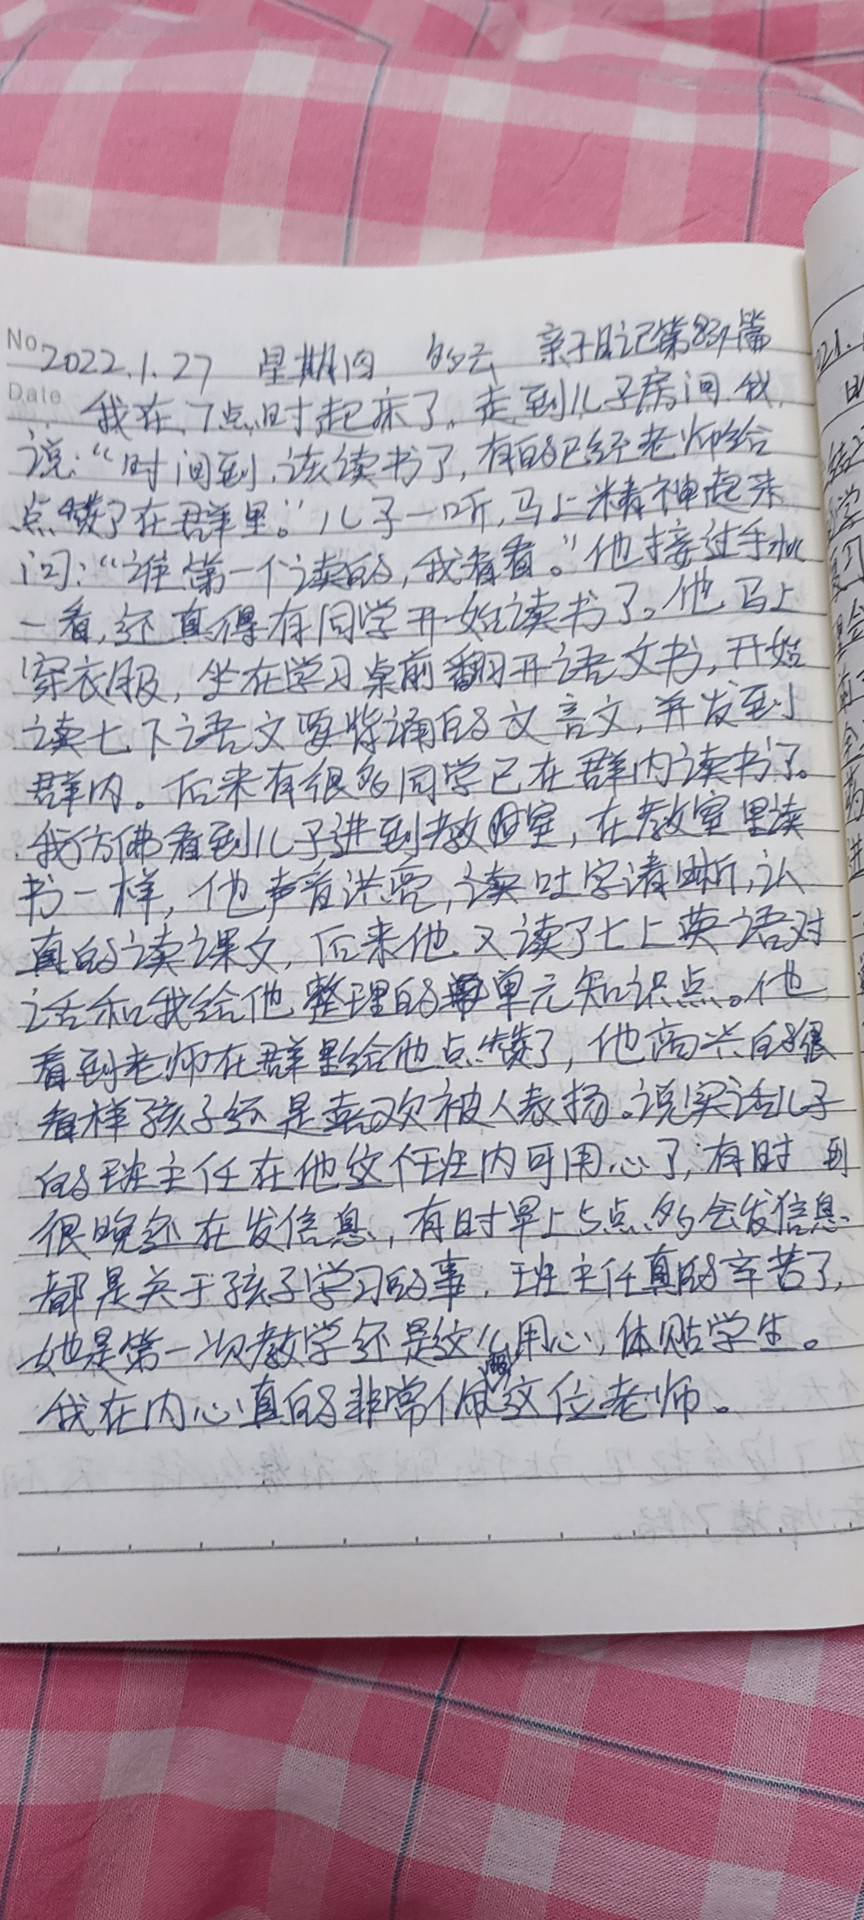 No.
2022.1.27 星期四 多云 亲子日记第831篇
Date
我在7点时起床了。走到儿子房间我
说:“时间到,该读书了,有的已经老师给
点赞了在群里。”儿子一听,马上精神起来
问:“谁第一个读的,我看看。”他接过手机
一看,还真得有同学开始读书了。他马上
穿衣服,坐在学习桌前翻开语文书,开始
读七下语文要背诵的文言文,并发到
群内。后来有很多同学已在群内读书了。
我仿佛看到儿子进到教室,在教室里读
书一样,他声音洪亮,读吐字清晰,认
真的读课文,后来他又读了七上英语对
话和我给他整理的单元知识点。他
看到老师在群里给他点赞了,他高兴的很
看样孩子还是喜欢被人表扬。说实话儿子
的班主任在他这任班内可用心了,有时到
很晚还在发信息,有时早上5点多会发信息
都是关于孩子学习的事,班主任真的辛苦了,
她是第一次教学还是这么用心,体贴学生。
我在内心真的非常佩服这位老师。